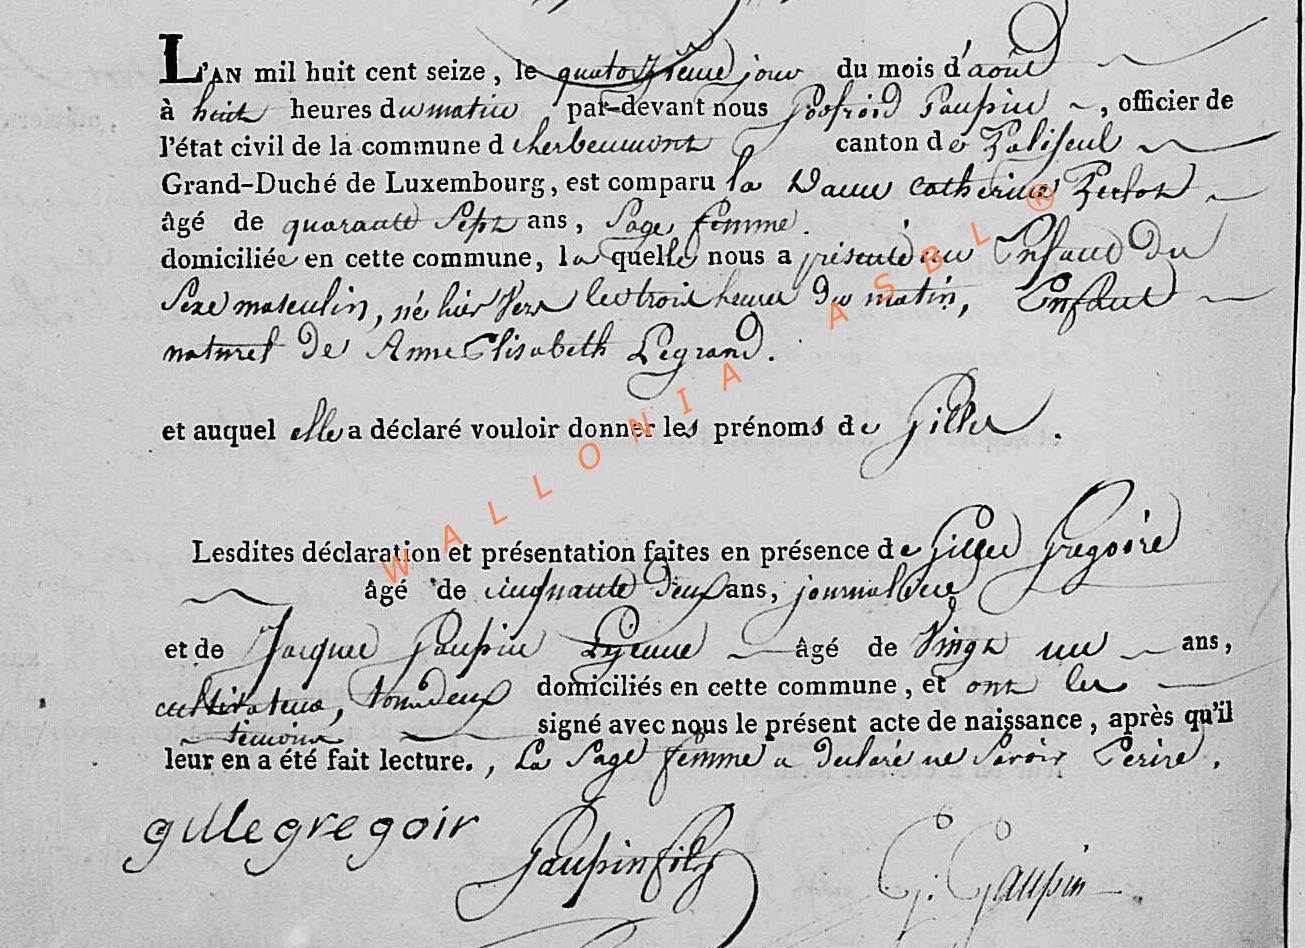 L'AN mil huit cent seize, le quatorzieme jour du mois d'août
à huit heures du matin par-devant nous Godfroid Gaupin, officier de
l'état civil de la commune d'herbeumont canton de Paliseul
Grand-Duché de Luxembourg, est comparu la Dame Catherine
âgé de quarante Sept ans, Sage femme.
domiciliée en cette commune, la quelle nous a présenté un Enfant du
Sexe masculin, né hier vers les trois heures du matin, Enfant
naturel de Anne Elisabeth Legrand.
et auquel elle a déclaré vouloir donner les prénoms de Gilles.
Lesdites déclaration et présentation faites en présence de Gilles Gregoire
âgé de cinquante deux ans, journalier
et de Jacques Gaupin Lejeune âgé de vingt un ans,
cultivateur, tous deux domiciliés en cette commune, et ont les
temoins signé avec nous le présent acte de naissance, après qu'il
leur en a été fait lecture., La Sage femme a declaré ne Savoir Ecrire.
gille gregoir
Gaupin fils
G. Gaupin
WALLONIA ASBL ®